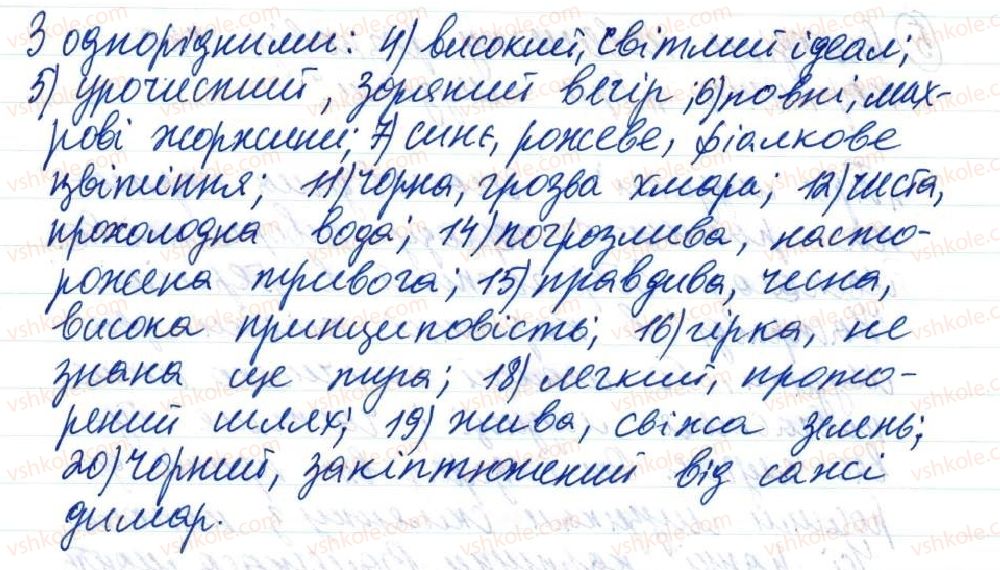 З однорідними: 4) високий, світлий ідеал;
5) урочистий, зоряний вечір; 6) повні, мах-
рові жоржини; 7) синє, рожеве, фіалкове
цвітіння; 11) чорна, грозва хмара; 12) чиста,
прохолодна вода; 14) погрозлива, насто-
рожена тривога; 15) правдива, чесна,
висока принциповість; 16) гірка, не
знана ще туга; 18) легкий, прото-
рений шлях; 19) жива, свіжа зелень;
20) чорний, закіптюжений від сажі
димар.